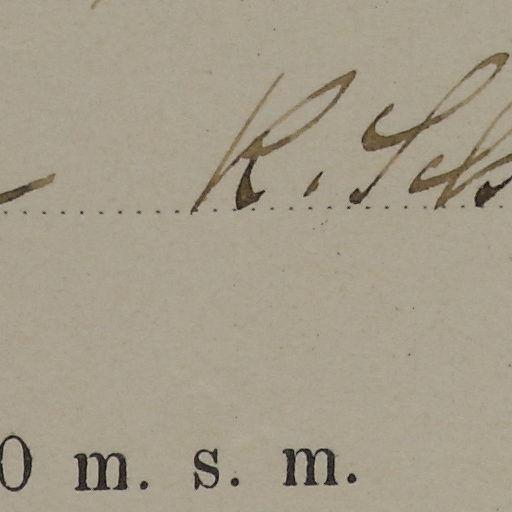 R. Sch
0 m. s. m.